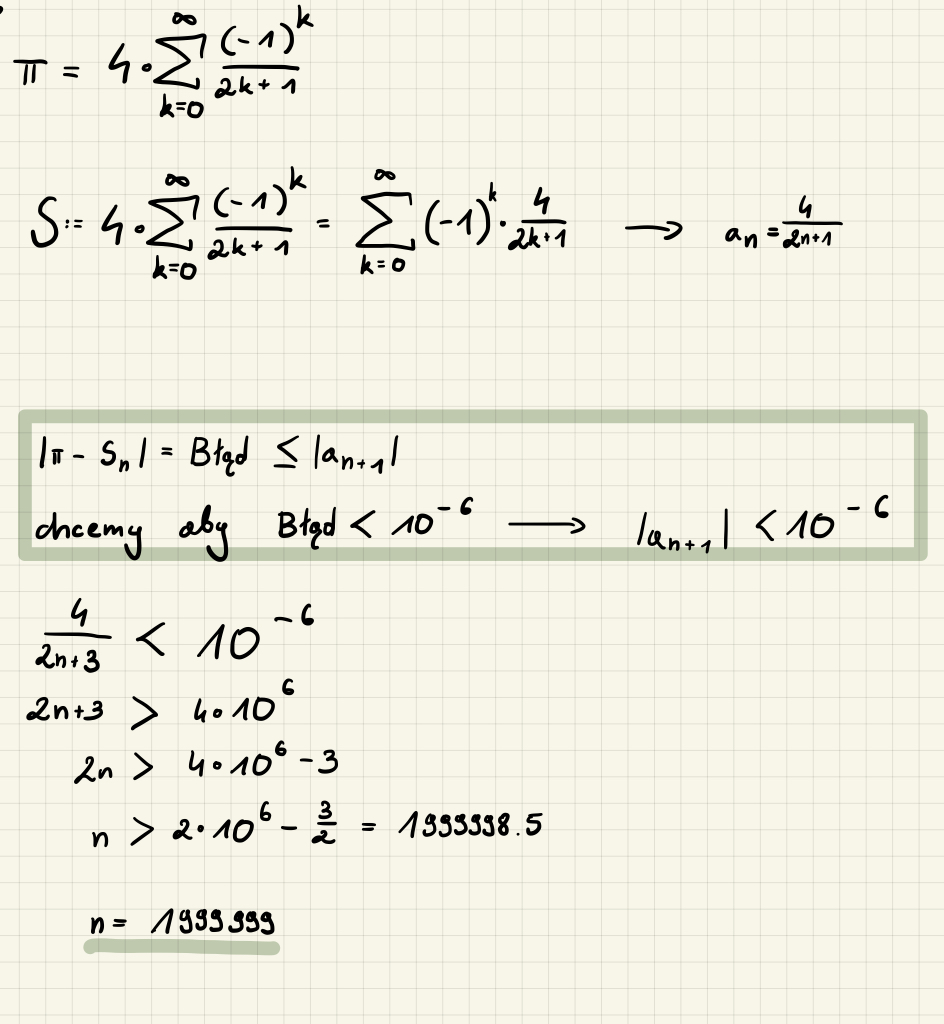 π = 4·∑_{k=0}^{∞} (-1)^k / (2k+1)
S := 4·∑_{k=0}^{∞} (-1)^k / (2k+1) = ∑_{k=0}^{∞} (-1)^k · 4/(2k+1) ⟶ a_n = 4/(2n+1)
|π - S_n| = Błąd ≤ |a_{n+1}|
chcemy aby Błąd < 10^{-6} ⟶ |a_{n+1}| < 10^{-6}
4/(2n+3) < 10^{-6}
2n+3 > 4·10^6
2n > 4·10^6 - 3
n > 2·10^6 - 3/2 = 1999998.5
n = 1999999